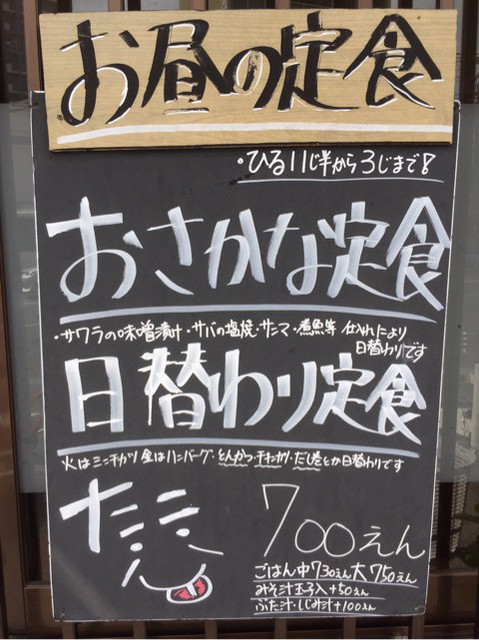 お昼の定食
・ひる11じ半から3じまで!
おさかな定食
・サワラの味噌漬け・サバの塩焼・サンマ・煮魚等 仕入れにより
日替わりです
日替わり定食
火はミンチカツ 金はハンバーグ・とんかつ・チキンカツ・だし巻とか日替わりです
700えん
ごはん中730えん大750えん
みそ汁玉子入+50えん
ぶた汁・しじみ汁+100えん